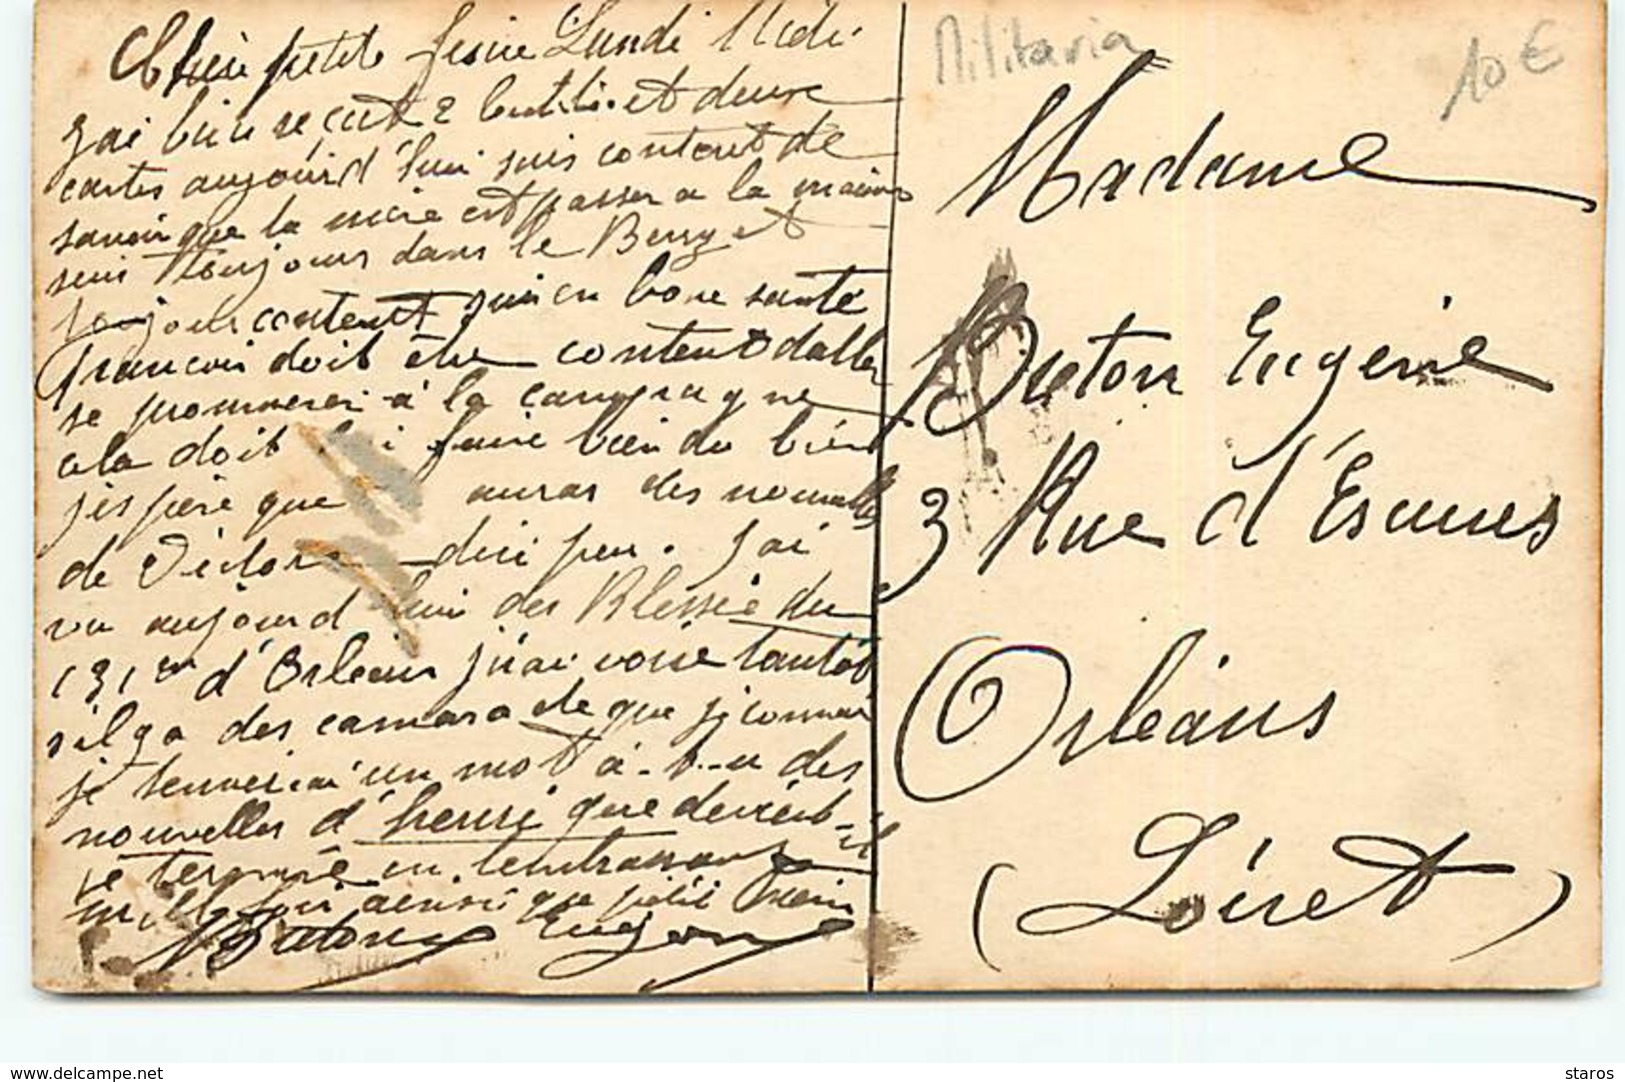 Chère petite femme Lundi Midi
J'ai bien reçut 2 et deux
cartes aujourd'hui suis content de
savoir que la mère est passer a la maison
suis toujours dans le Berry et
toujours content suis en bone santé
François doit être content daller
se promener à la campagne
cela doit lui faire bien du bien
j'espère que auras des nouvelles
de Victor peu. J'ai
vu aujourd hui des Blessié du
131em d'Orléans j'irai voire tantôt
s'il ya des camarade que je connais
je t'enverrai un mot a-t-u des
nouvelles d'henri que devient-il
je termine en t'embrassant
mille fois ainsi que petit
Breton Eugène
Militaria
10 €
Madame
Breton Eugènie
3 Rue d'Escures
Orléans
(Loiret)
www.delcampe.net
staros